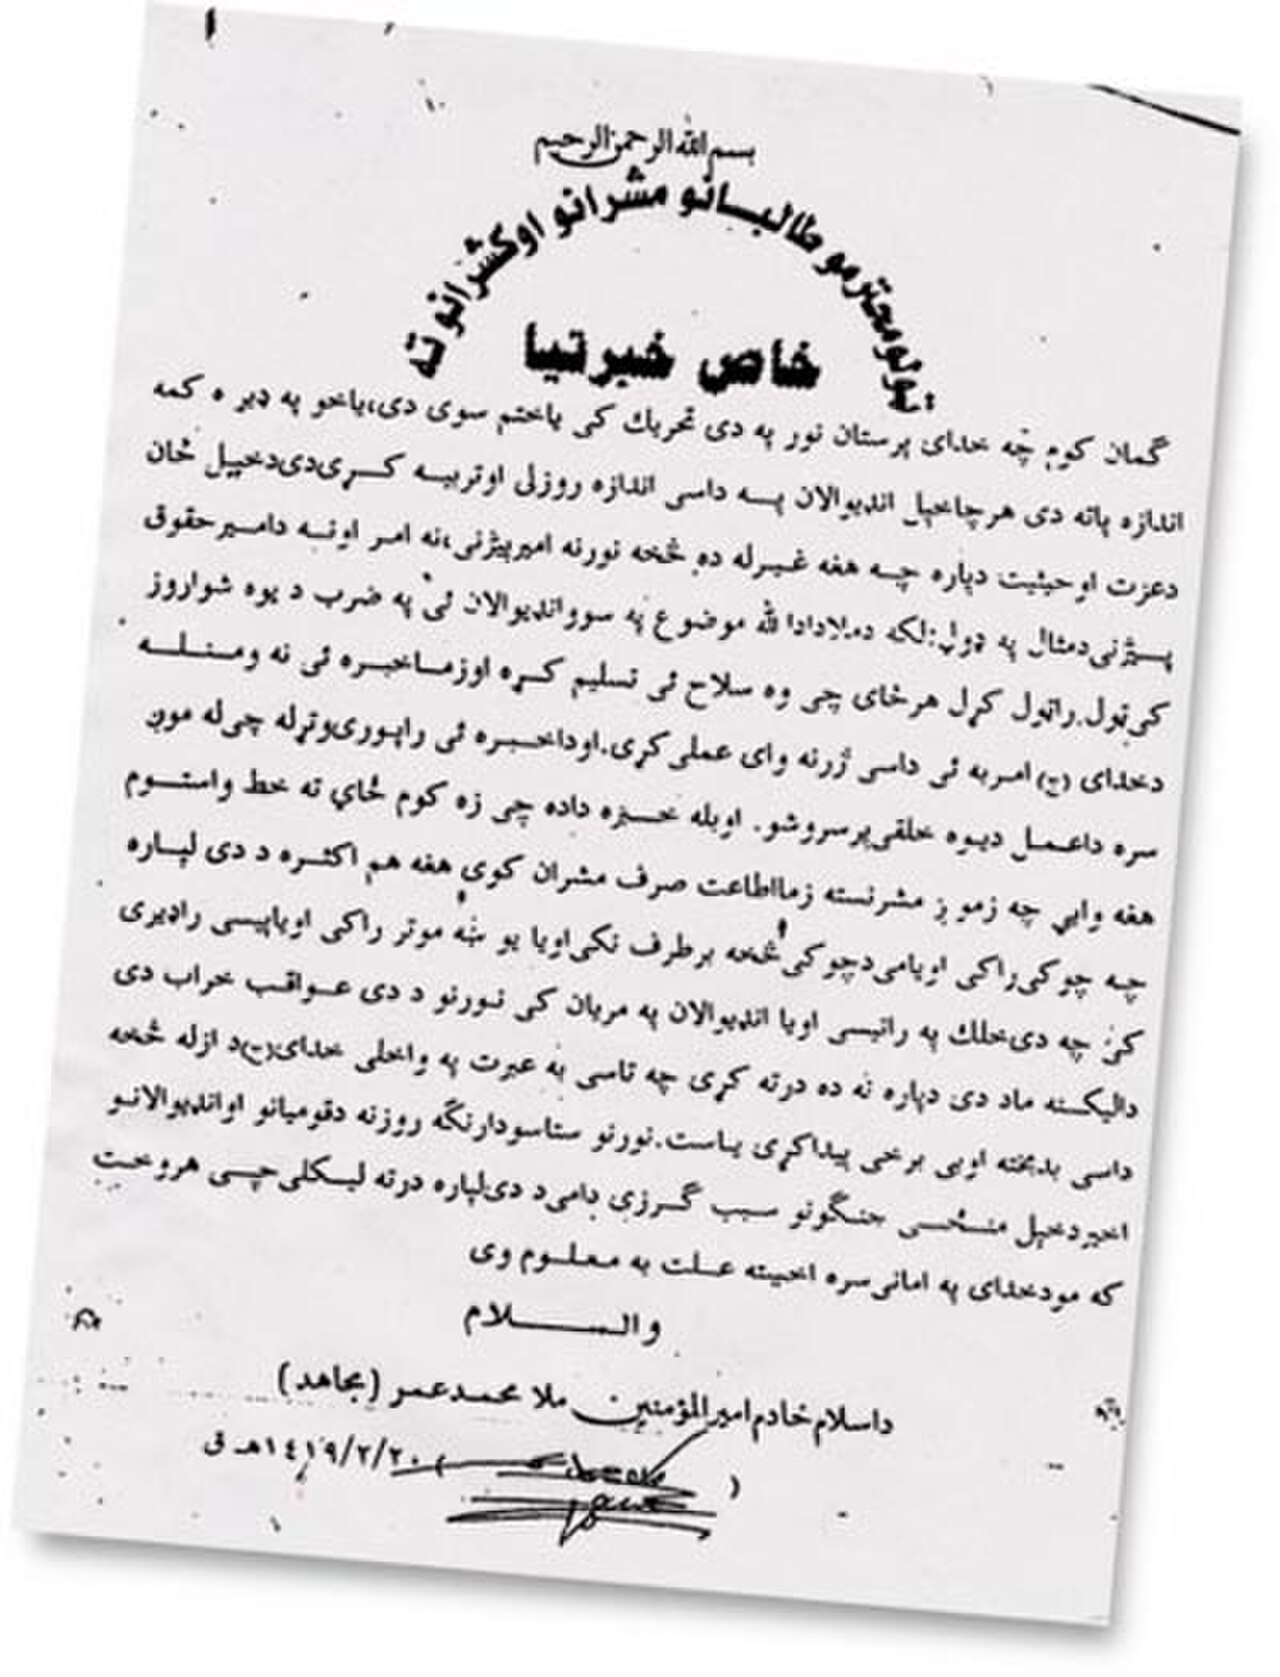 بسم الله الرحمن الرحيم
ټولو محترمو طالبانو مشرانو او کشرانو ته
خاص خبرتيا
گمان کوم چه خدای پرستان نور په دی تحریك کی یاختم سوی دی،یاخو په ډیره کمه
اندازه پاته دی هرچاخپل انډیوالان په داسی اندازه روزلی اوتربیه کړی‌دی‌دخپل ځان
دعزت اوحیثیت دپاره چه هغه غیرله ده څخه نورنه امیرپیژنی،نه امر اونه دامیرحقوق
پیژنی‌دمثال په ډول:لکه دملادادالله موضوع په سووانډیوالان ئی په ضرب د یوه شواروز
کی‌ټول.راټول کړل هرځای چی وه سلاح ئی تسلیم کړه اوزماخبره ئی نه ومنله
دخدای (ج) امربه ئی داسی ژرنه وای عملی کړی.اوداخبره ئی راپوری‌وتړله چی‌له موږ
سره داعمل دیوه خلقی‌پرسروشو. اوبله خبره داده چی زه کوم ځای ته خط واستوم
هغه وایی چه زموږ مشرنسته زمااطاعت صرف مشران کوی هغه هم اکثره د دی لپاره
چه چوکی‌راکی اویامی‌دچوکی څخه برطرف نکی‌اویا یو ښه موټر راکی اویاپیسی راډیری
کئ چه دی‌خلك په رانیسی اویا انډیوالان په مریان کی نورنو د دی عواقب خراب دی
دالیکنه ماد دی دپاره نه ده درته کړی چه تاسی به عبرت په واخلی خدای(ج)د ازله څخه
داسی بدبخته اوبی برخی پیداکړی یاست.نورنو ستاسودارنگه روزنه دقومیانو اوانډیوالانو
اخیردخپل منځی جنگونو سبب گرزی دامی‌د دی‌لپاره درته لیکلی‌چی هروخت
که مودخدای په امانی‌سره اخیسته علت به معلوم وی
والسلام
داسلام خادم امیرالمؤمنین ملا محمدعمر (مجاهد)
۱٤۱۹/۲/۲۰هـ ق